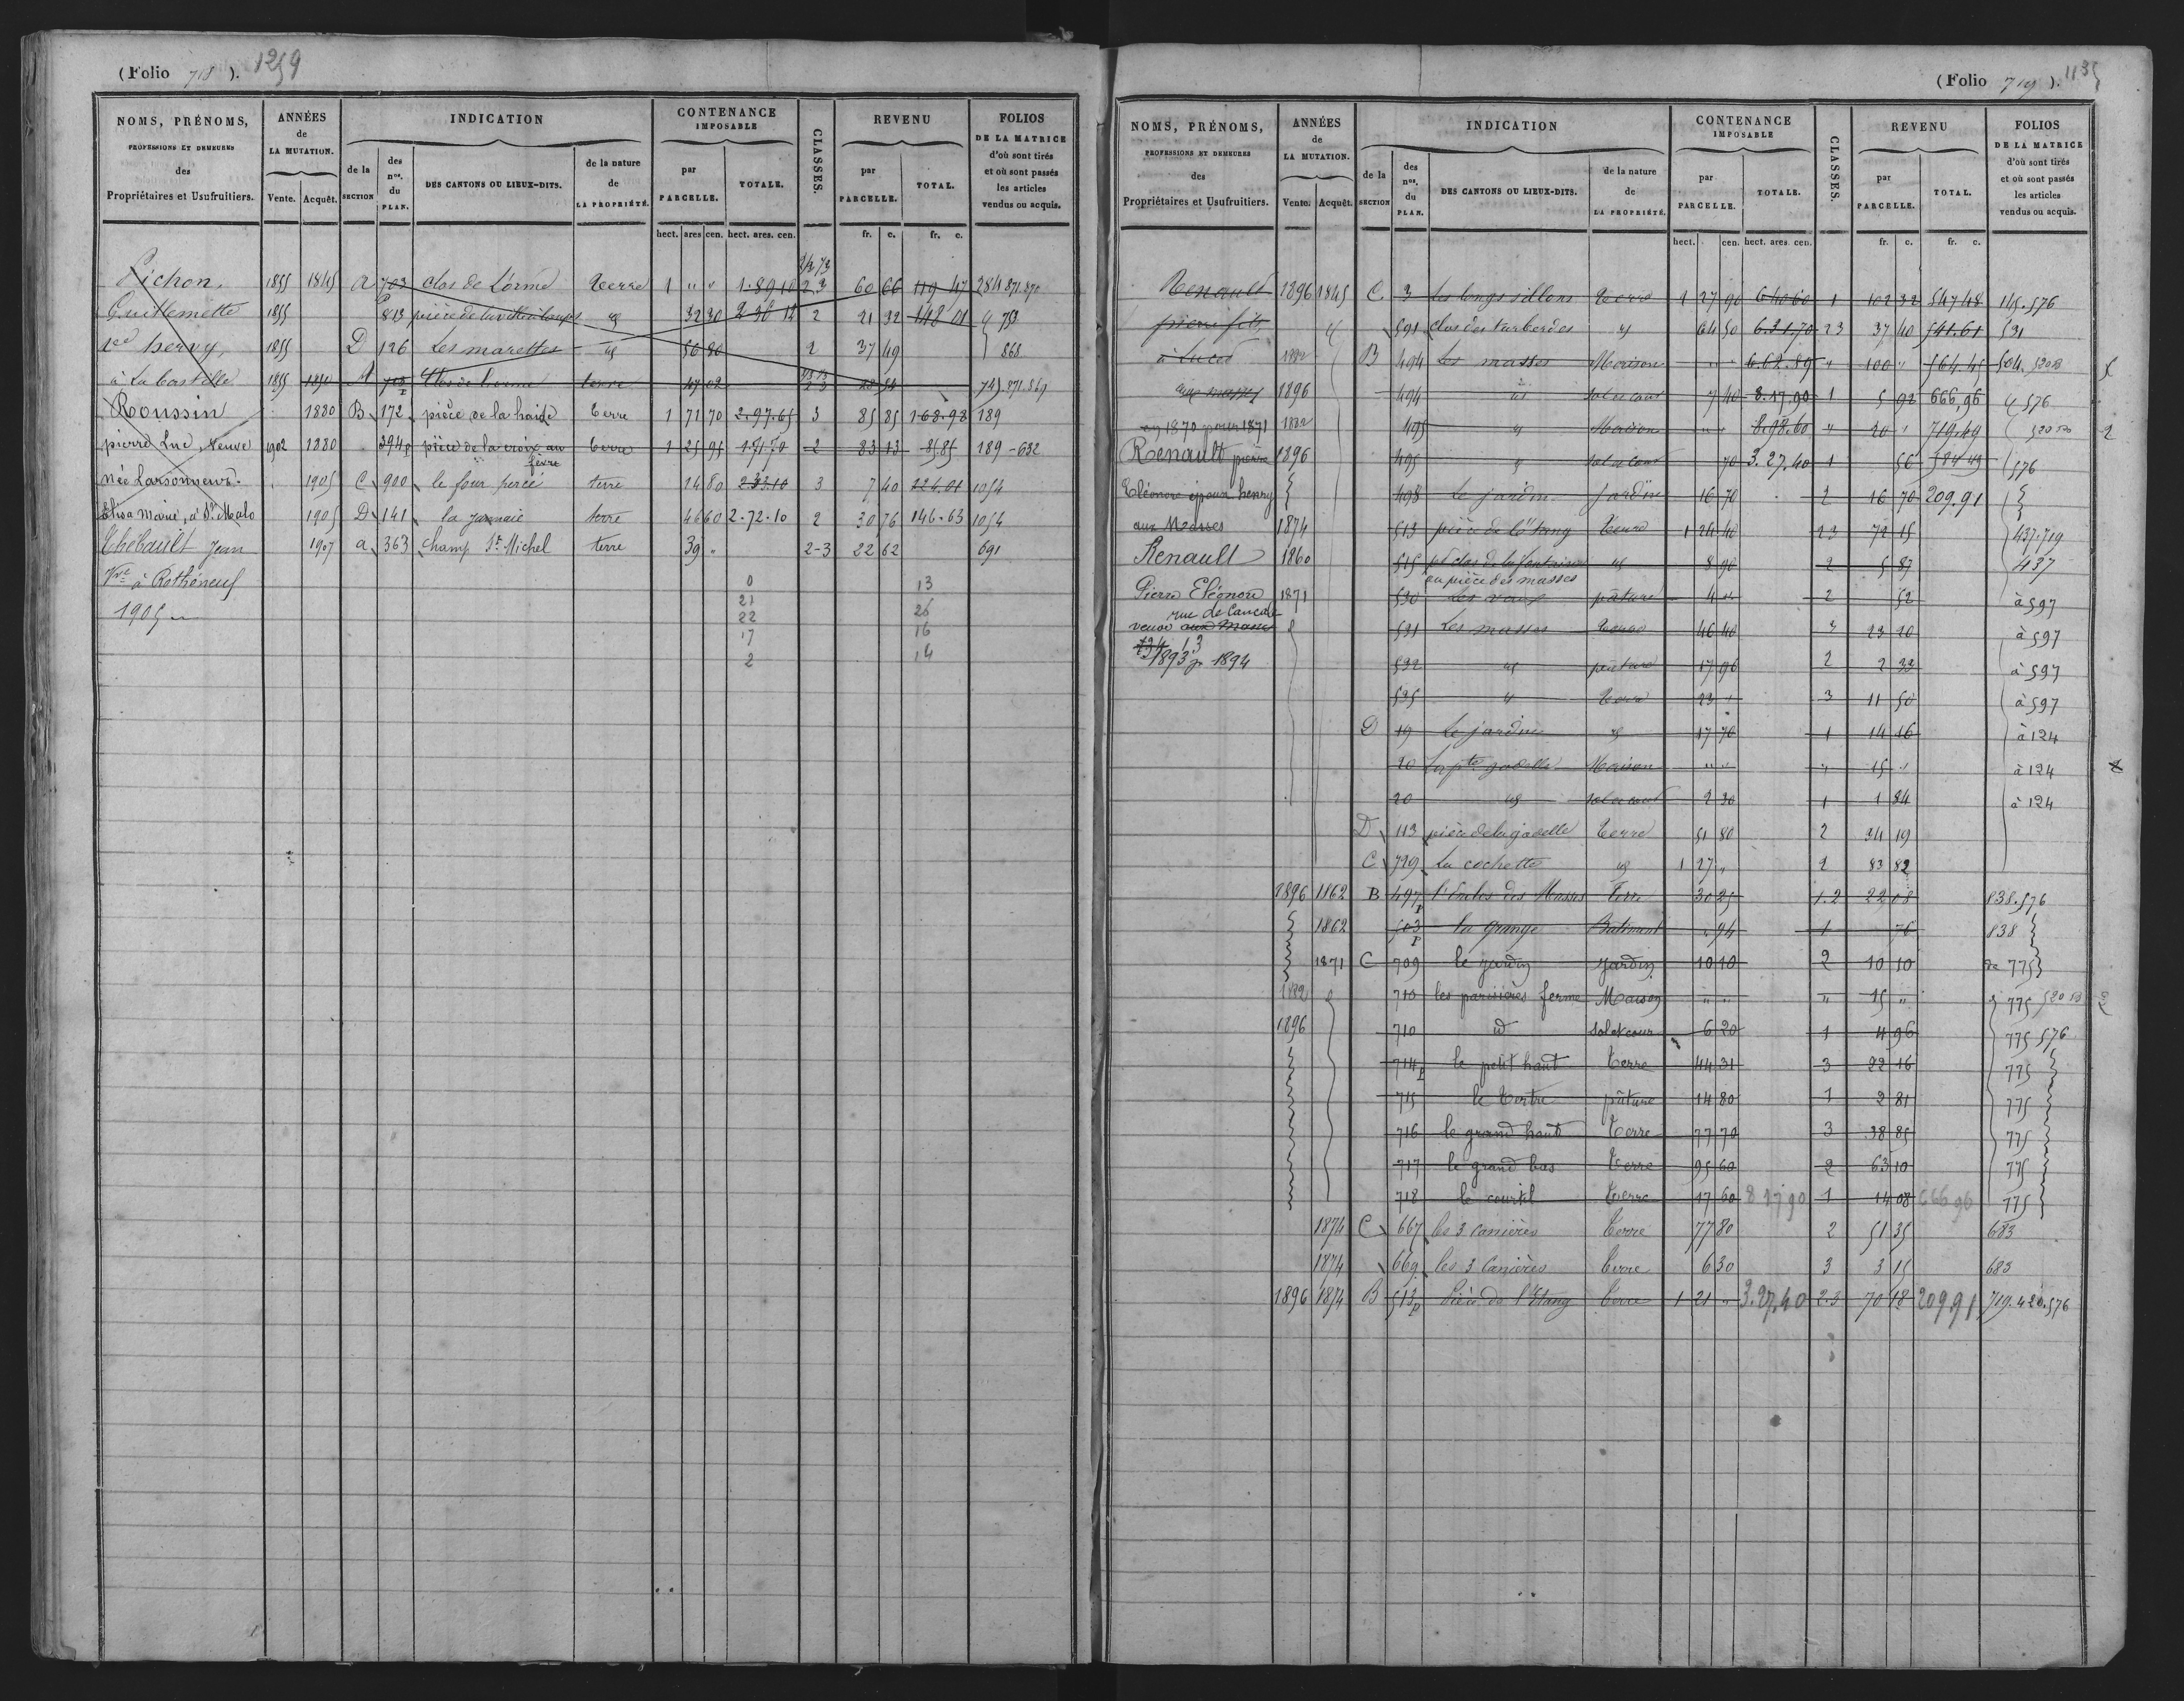 (Folio 718). 1259
NOMS, PRÉNOMS, PROFESSIONS ET DEMEURES des Propriétaires et Usufruitiers.
ANNÉES de LA MUTATION. Vente. Acquêt.
INDICATION de la SECTION des nos. du PLAN. DES CANTONS OU LIEUX-DITS. de la nature de LA PROPRIÉTÉ.
CONTENANCE IMPOSABLE par PARCELLE. TOTALE.
CLASSES.
REVENU par PARCELLE. TOTAL.
FOLIOS DE LA MATRICE d'où sont tirés et où sont passés les articles vendus ou acquis.
hect. ares cen. hect. ares. cen. fr. c. fr. c.
Pichon. 1855 1845 a 703 clos de l'orme terre 1 " " 1.89 10 2.3 60 66 119 47 284 871.870
Guillemette 1855 813 32 30 2 36 12 2 21 32 148 01 753
Ved hervy, 1855 D 126 Les marettes id 56 80 2 37 49 868
à La bastille 1855 1850 terre 47 02 2-3 28 54 749.871.569
Roussin 1880 B 172 pièce de la haide terre 1 71 70 2.97.65 3 85 85 168.98 189
pierre luc, Veuve 1902 1880 394p pièce de la croix au lièvre terre 1 25 95 1.71.70 2 83 13 85.85 189-632
née Larsonneur. 1905 C 900 le four percé terre 14 80 2.33.10 3 7 40 224.01 1054
Elisa Marie, à St Malo 1905 D 141 la jannaie terre 46 60 2.72.10 2 30 76 146.63 1054
Thébault Jean 1907 a 363 champ St Michel terre 39 " 2-3 22 62 691
Vve à Rothéneuf
1905
0 13
21 26
22 16
17 14
2
(Folio 719). 1135
NOMS, PRÉNOMS, PROFESSIONS ET DEMEURES des Propriétaires et Usufruitiers.
ANNÉES de LA MUTATION. Vente. Acquêt.
INDICATION de la SECTION des nos. du PLAN. DES CANTONS OU LIEUX-DITS. de la nature de LA PROPRIÉTÉ.
CONTENANCE IMPOSABLE par PARCELLE. TOTALE.
CLASSES.
REVENU par PARCELLE. TOTAL.
FOLIOS DE LA MATRICE d'où sont tirés et où sont passés les articles vendus ou acquis.
hect. cen. hect. ares. cen. fr. c. fr. c.
Renault 1896 1845 C. 3 Les longs sillons terre 1 27 90 6 40 60 1 102 32 547 48 145.576
pierre fils, 591 clos des turberdes id 64 50 6.31.70 23 37 40 541.61 531
à Lucet 1882 B 494 Les masses Maison " " 6.62.89 " 100 " 564.45 504. 520 B
aux masses 1896 494 id sol et cour 7 40 8.17.90 1 5 92 666,96 576
en 1870 pour 1871 1882 495 id Maison " " 8.98.60 " 20 " 719.49 520 B 2
Renault pierre 1896 495 id sol et cour 70 3.27.40 1 56 576
Eléonore époux henry 498 Le jardin Jardin 16 70 2 16 70 209.91
aux Masses 1874 513 pièce de l'étang terre 1 24 40 23 72 15 437.719
Renault 1860 515 pt clos de la fontaine ou pièce des masses id 8 90 2 5 87 437
Pierre Eléonore 1871 530 Les vaux pâture 4 " 2 52 à 597
rue de Cancale
veuve aux Masses 531 Les masses terre 46 40 3 23 20 à 597
1893 p 1894 532 id pâture 17 96 2 2 33 à 597
535 id terre 23 " 3 11 50 à 597
D 19 Le jardin id 17 70 1 14 16 à 124
20 La pte godelle Maison " " " 15 " à 124
20 id sol et cour 2 30 1 1 84 à 124
D 113 pièce de la godelle terre 51 80 2 34 19
C 729 La cochette id 1 27 " 2 83 82
1896 1862 B 497p l'Enclos des Masses Terre 30 25 1.2 22 08 838.576
1862 503p la grange Batiment " 94 1 76 838
1871 C 709 le jardin jardin 10 10 2 10 10 de 775
1882 710 les parisières ferme Maison " " " 15 " 775 520 B
1896 710 id sol et cour 6 20 1 4 96 775 576
714p le petit haut terre 44 31 3 22 16 775
715 le tertre pâture 14 80 1 2 81 775
716 le grand haut terre 77 70 3 38 85 775
717 le grand bas terre 95 60 2 63 10 775
718 le courtil terre 17 60 8 17 90 1 14 08 666 96 775
1874 C 667 les 3 Canières terre 77 80 2 51 35 683
1874 669 les 3 Canières terre 6 30 3 3 15 683
1896 1874 B 513p Pièce de l'Etang terre 1 21 " 3.27.40 2.3 70 18 209 91 719.420.576